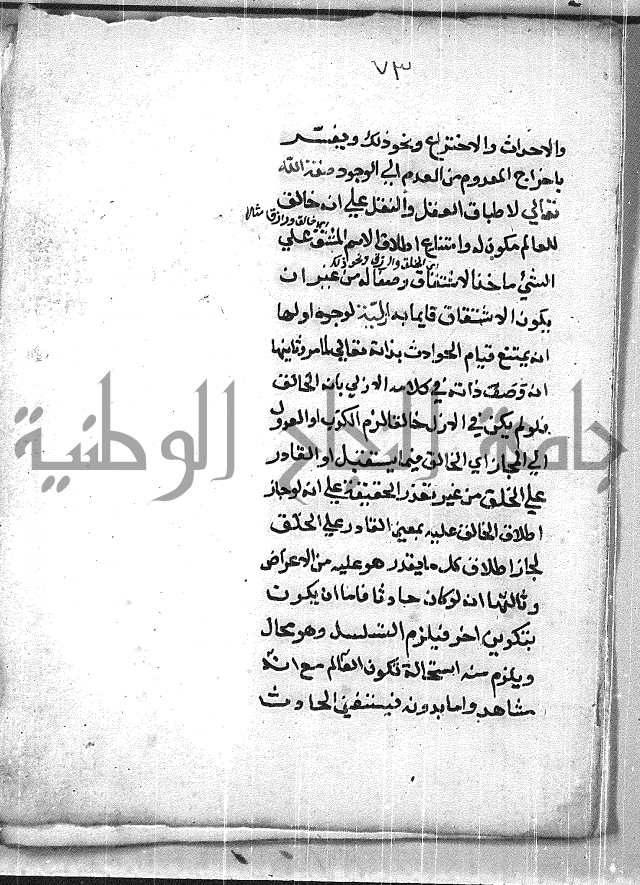 ٧٣
والاحداث والاختراع ونحو ذلك ويفسر
باخراج المعدوم من العدم الي الوجود صفة الله
تعالي لاطباق العقل والنقل علي انه خالق
اي خالق ورازق مثلا
للعالم مكون له وامتناع اطلاق الاسم المشتق علي
من الخلق والرزق ونحو ذلك
الشئ ماخذ الاشتقاق وصفا له من غير ان
يكون الاشتقاق قايما به ازلية لوجوه اولها
انه يمتنع قيام الحوادث بذاته تعالي لما مر وثانيها
انه وصف ذاته في كلامه الازلي بانه الخالق
فلو لم يكن في الازل خالقا لزم الكذب او العدول
الي المجاز اي الخالق فيما يستقبل او القادر
علي الخلق من غير تعذر الحقيقة علي انه لو جاز
اطلاق الخالق عليه بمعني القادر علي الخلق
لجاز اطلاق كل ما يقدر هو عليه من الاعراض
وثالثها انه لو كان حادثا فاما ان يكون
بتكوين اخر فيلزم التسلسل وهو محال
ويلزم منه استحالة تكون العالم مع انه
مشاهد واما بدونه فيستغني الحادث
جامعة النجاح الوطنية